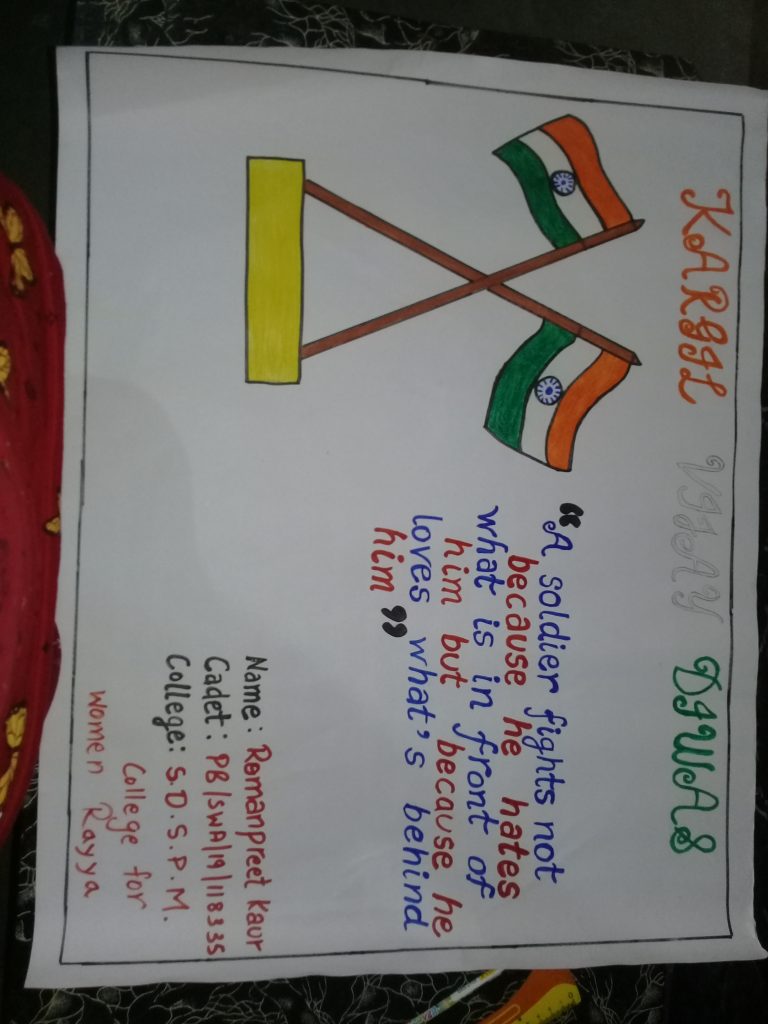 KARGIL VIJAY DIWAS
"A soldier fights not
because he hates
what is in front of
him but because he
loves what's behind
him"
Name: Romanpreet Kaur
Cadet: PB/SWA/19/118335
College: S.D.S.P.M.
College for
women Rayya